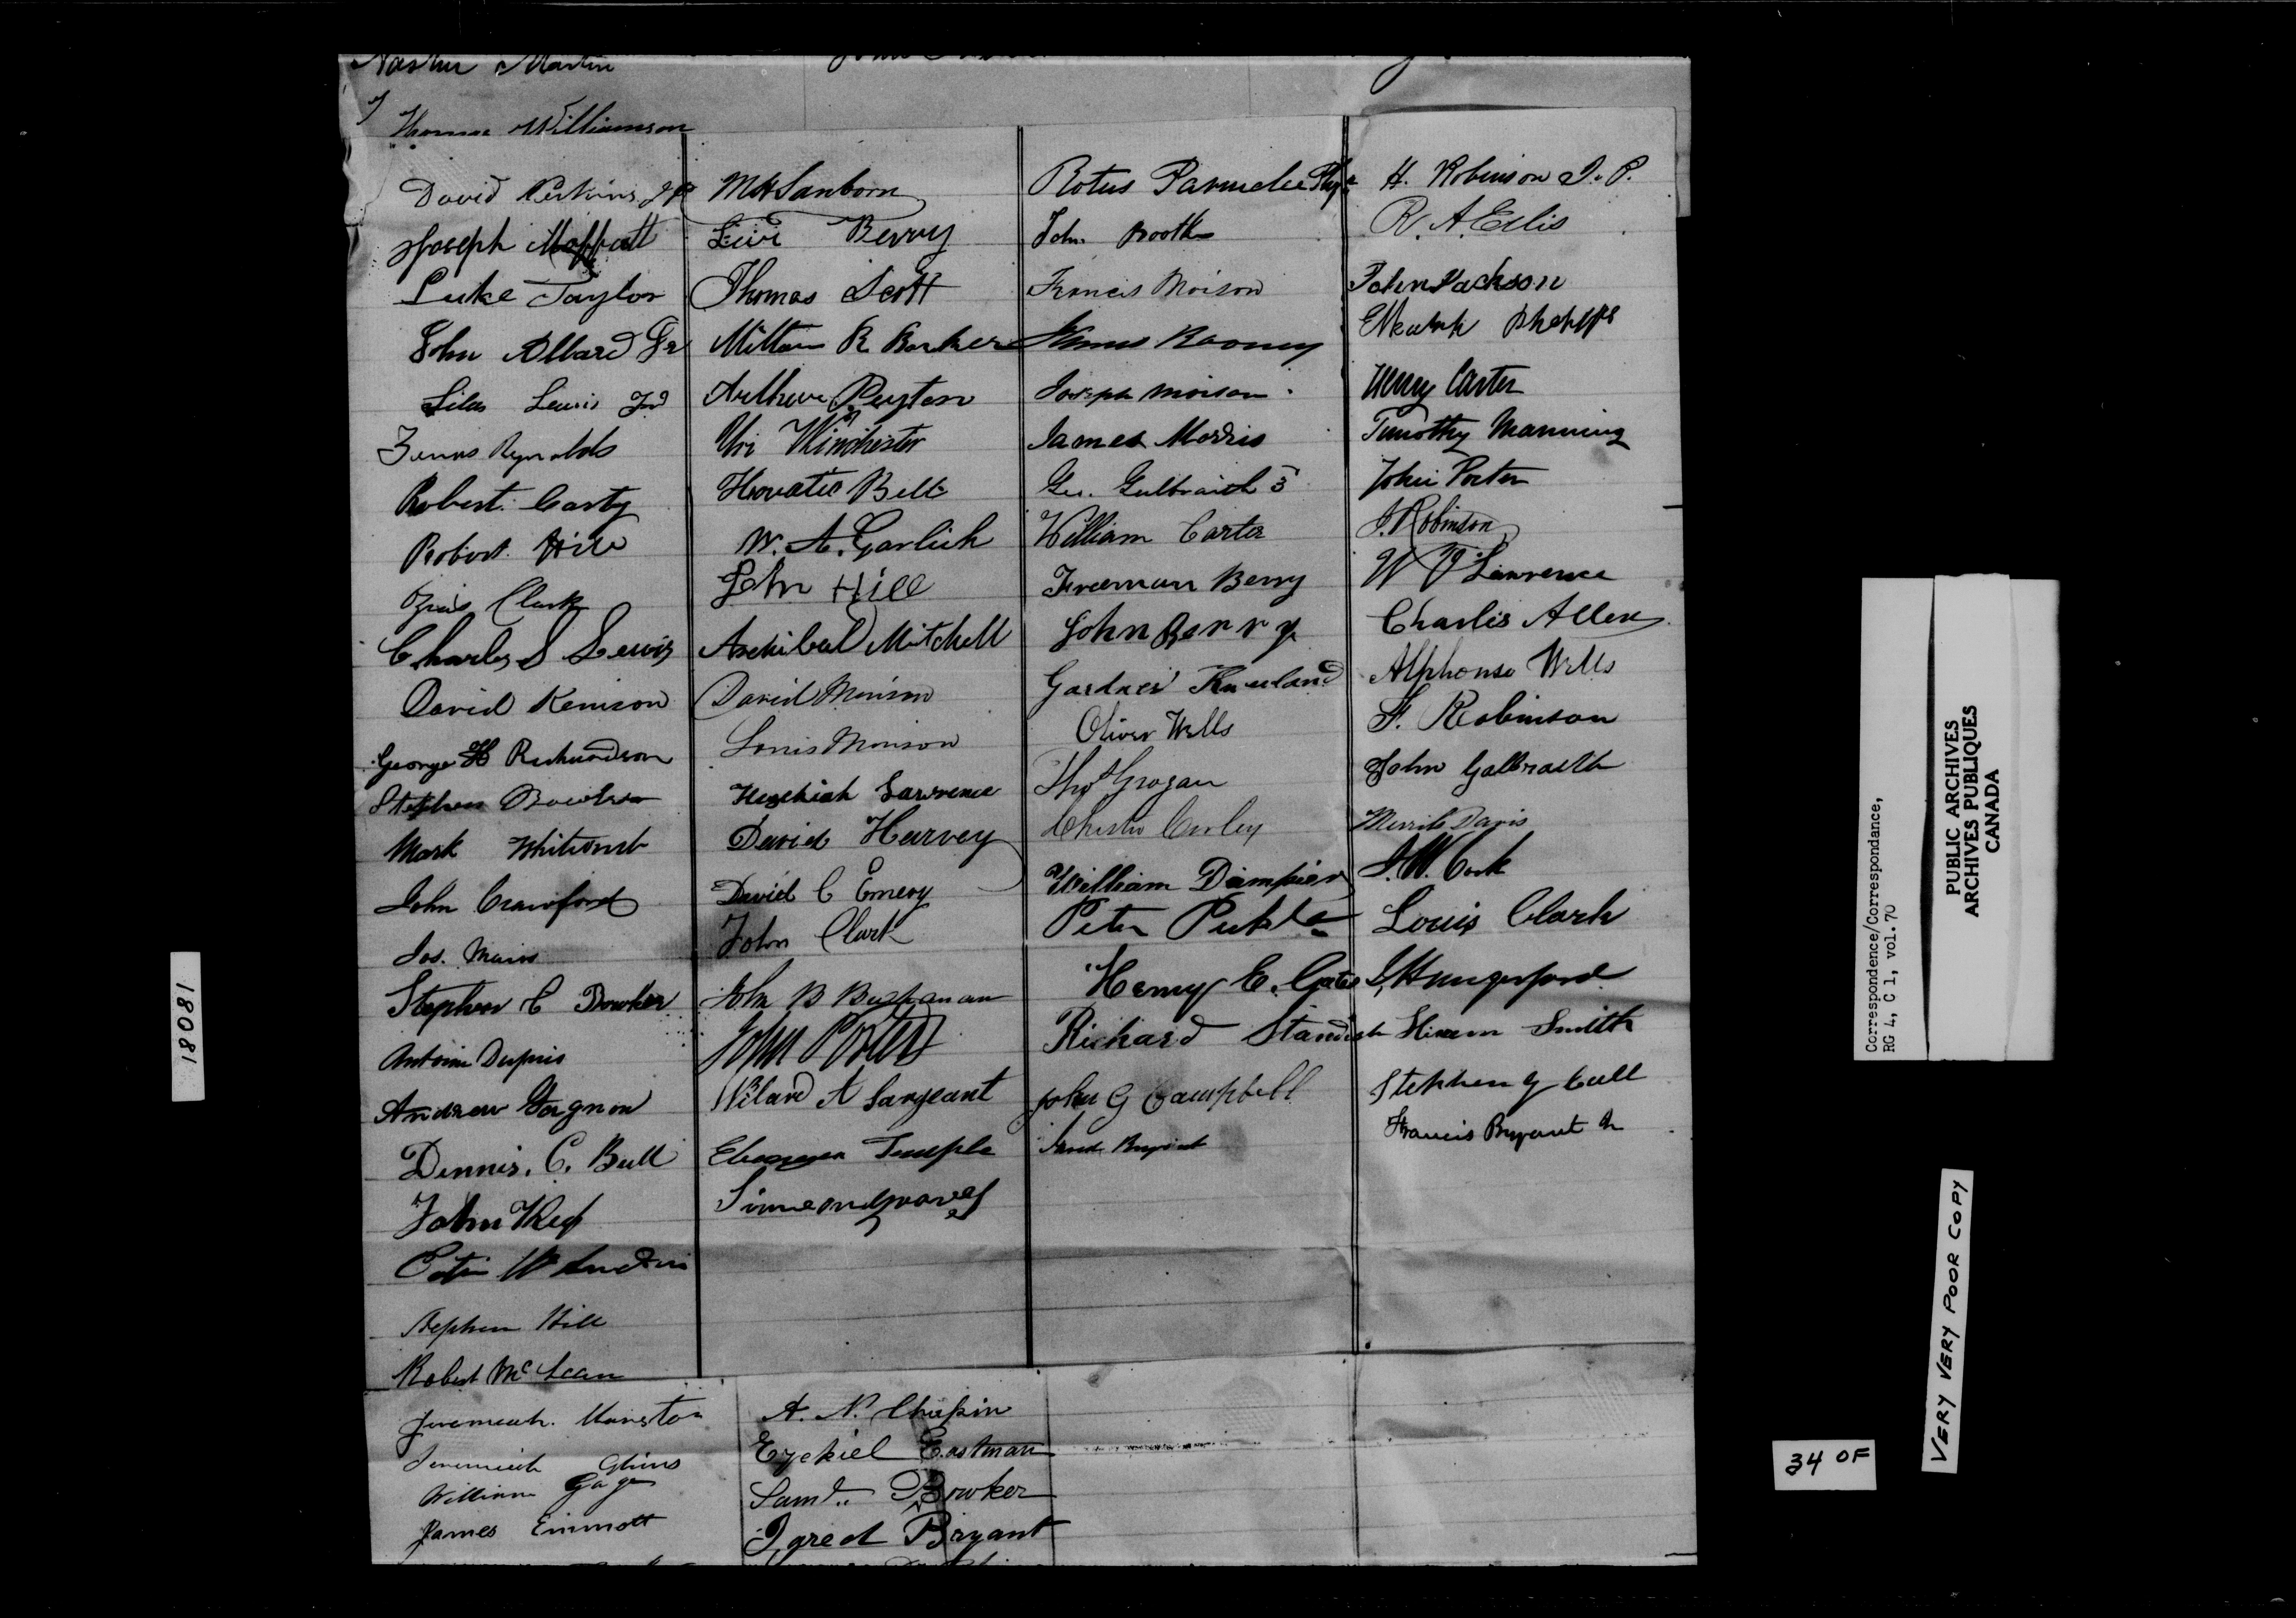 Martin
Thomas Williamson
David Perkins J P
Joseph Moffatt
Luke Taylor
John Allard Jr
Silas Lewis
Zenas Reynolds
Robert Carty
Robert Hill
Clark
Charles S Lewis
David Kenison
George H Richardson
Stephen
Mark Whitcomb
John Crawford
Jos. Mairs
Stephen C Bowker
Antoine Dupuis
Andrew Gagnon
Dennis. C. Bull
John
Stephen Hill
Robert McLean
Jeremiah
Jeremiah
William Gage
James Emmott
M H Sanborn
Levi Berry
Thomas Scott
Milton R Barker
Arthur Peyton
Uri Winchester
Horatio Bell
W. A. Garlick
John Hill
Archibal Mitchell
David Morison
Louis Morison
Hezekiah Lawrence
David Harvey
David C Emery
John Clark
John B Buchanan
John Porter
Wilard A Sargeant
Ebenezer Temple
Simeon Graves
A. N. Chapin
Ezekiel Eastman
Saml. Bowker
Jared Bryant
Rotus Parmelee
John Booth
Francis Moison
James Rooney
Joseph Moison
James Morris
Geo. Galbraith 3
William Carter
Freeman Berry
John Berry
Gardner Kneeland
Oliver Wells
Thos Grogan
Chester Curley
William Dampier
Peter
Henry E. Gates
Richard Standish
John G Campbell
Bryant
H. Robinson J. P.
R. A. Ellis
John Jackson
Phelps
Henry Carter
Timothy Manning
John Porter
J. Robinson
W V Lawrence
Charles Allen
Alphonso Wells
F. Robinson
John Galbraith
Merrils Davis
J. W. Cook
Louis Clark
Hungerford
Hiram Smith
Stephen G Bull
Francis Bryant Jr
18081
Correspondence/Correspondance,
RG 4, C 1, vol. 70
PUBLIC ARCHIVES
ARCHIVES PUBLIQUES
CANADA
VERY VERY POOR COPY
34 OF